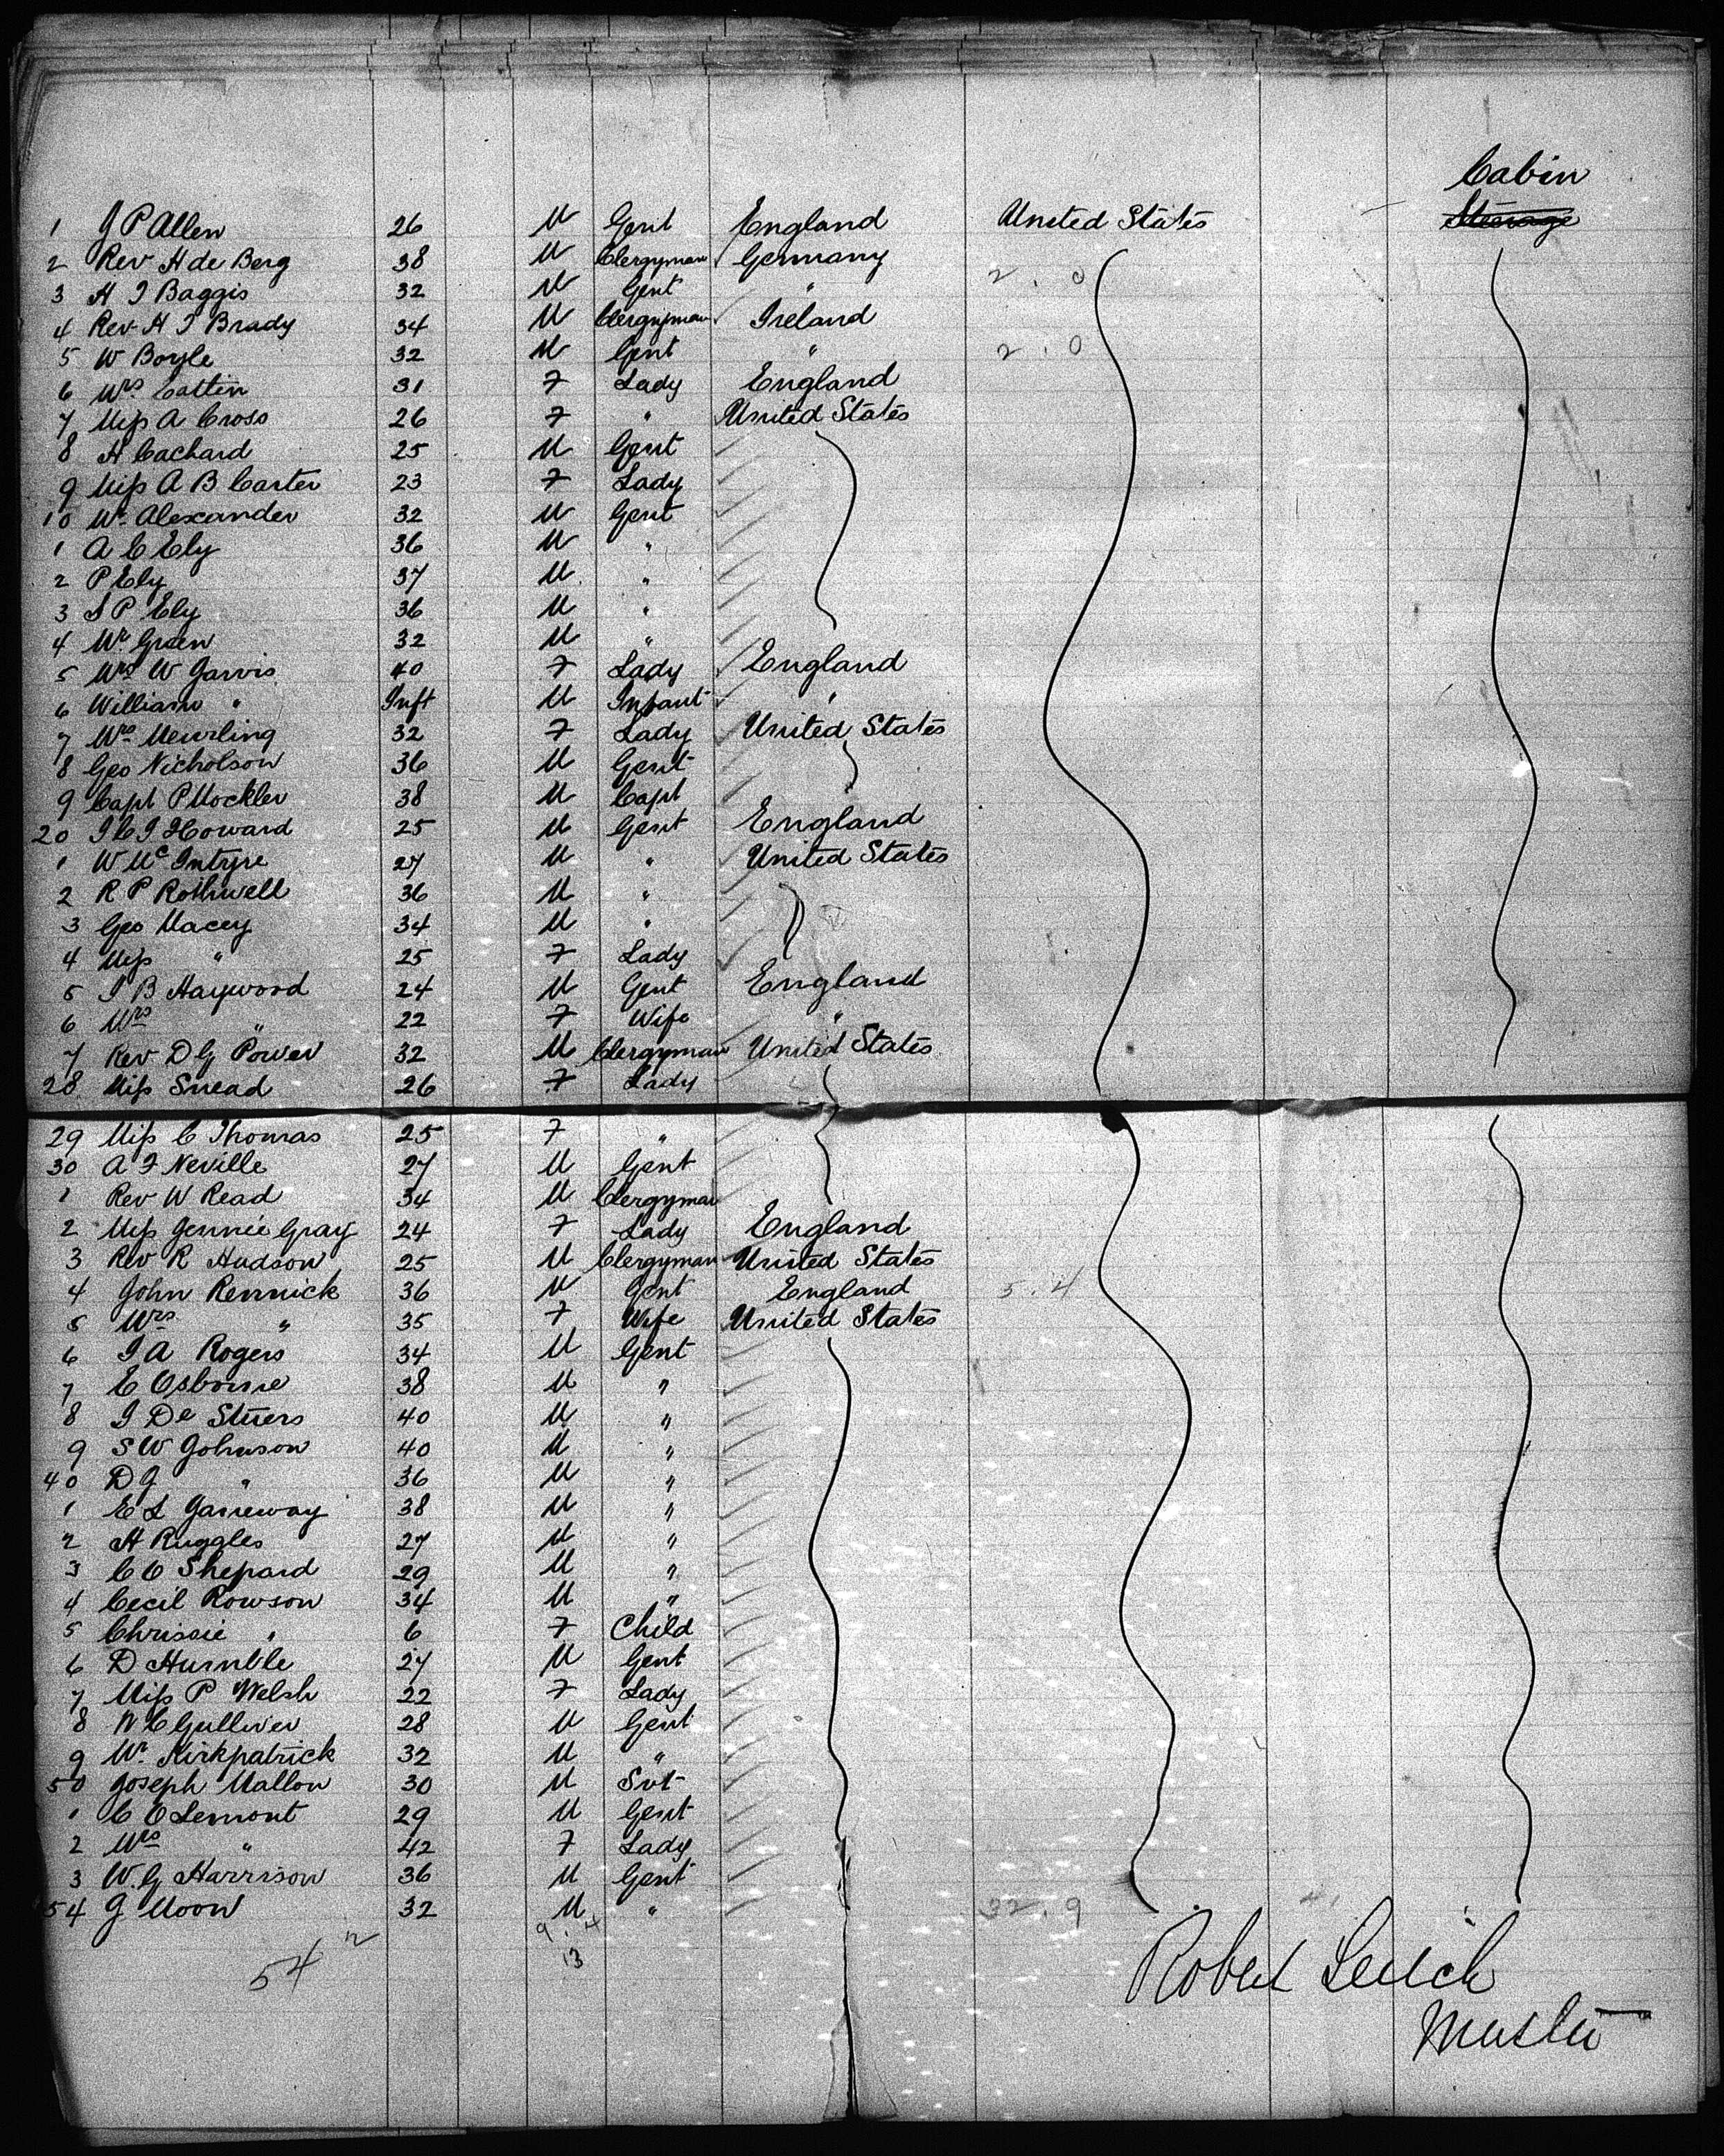 Cabin
1 J P Allen 26 M Gent England United States Steerage
2 Rev H de Berg 38 M Clergyman Germany
3 H J Baggis 32 M Gent " 2.0
4 Rev H J Brady 34 M Clergyman Ireland
5 W Boyle 32 M Gent " 2.0
6 Mrs Cattin 31 F Lady England
7 Miss A Cross 26 F " United States
8 H Cachard 25 M Gent
9 Miss A B Carter 23 F Lady
10 Mr Alexander 32 M Gent
1 A C Ely 36 M "
2 P Ely 37 M "
3 S P Ely 36 M "
4 Mr Green 32 M "
5 Mrs W Garvis 40 F Lady England
6 William " Inft M Infant "
7 Mrs Meurling 32 F Lady United States
8 Geo Nicholson 36 M Gent
9 Capt P Mockler 38 M Capt
20 J C J Howard 25 M Gent England
1 W McIntyre 27 M " United States
2 R P Rothwell 36 M "
3 Geo Macey 34 M "
4 Miss " 25 F Lady
5 J B Haywood 24 M Gent England
6 Mrs " 22 F Wife "
7 Rev D G Power 32 M Clergyman United States
28 Miss Snead 26 F Lady
29 Miss C Thomas 25 F "
30 A F Neville 27 M Gent
1 Rev W Read 34 M Clergyman
2 Miss Jennie Gray 24 F Lady England
3 Rev R Hudson 25 M Clergyman United States
4 John Rennick 36 M Gent England 5.4
5 Mrs " 35 F Wife United States
6 J A Rogers 34 M Gent
7 E Osborne 38 M "
8 J De Stuers 40 M "
9 S W Johnson 40 M "
40 D J " 36 M "
1 E L Janeway 38 M "
2 H Ruggles 27 M "
3 C O Shepard 29 M "
4 Cecil Rowson 34 M "
5 Chrissie " 6 F Child
6 D Humble 27 M Gent
7 Miss P Welsh 22 F Lady
8 W C Gulliver 28 M Gent
9 Mr Kirkpatrick 32 M "
50 Joseph Mallon 30 M Svt
1 C E Lemont 29 M Gent
2 Mrs " 42 F Lady
3 W. G Harrison 36 M Gent
54 G Moon 32 M " 32.9
9.4
54 13
Robert Leitch
Master